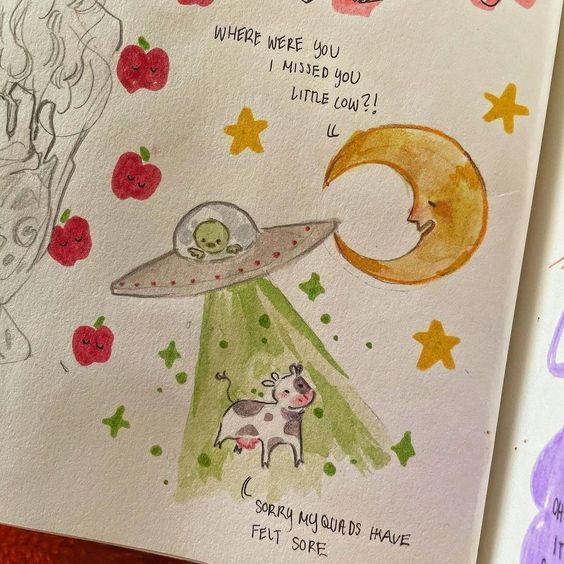 WHERE WERE YOU
I MISSED YOU
LITTLE COW?!
SORRY MY QUADS HAVE
FELT SORE
OH
IT